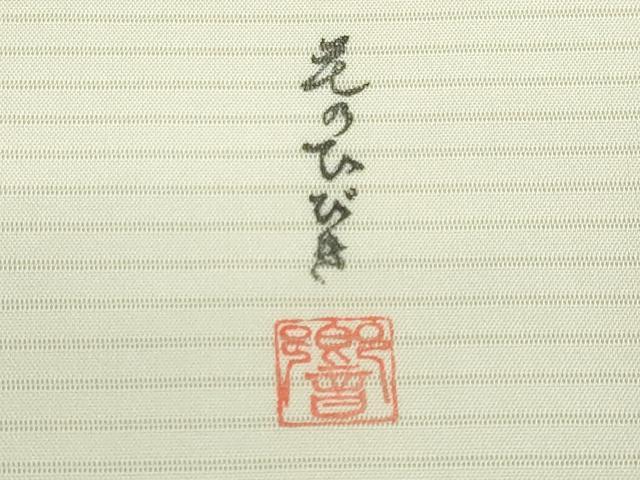 花のひびき
響